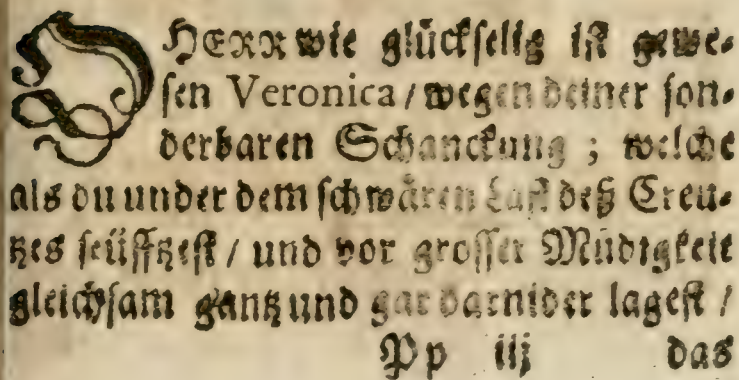 O HERR wie glückselig ist gewe-
sen Veronica / wegen deiner son-
derbaren Schanckung ; welche
als du under dem schwären Last deß Creu-
tzes seüfftzest / und vor grosser Müdigkeit
gleichsam gantz und gar darnider lagest /
Pp iij das